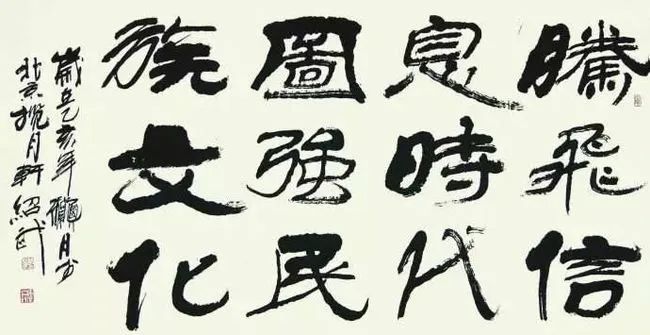 騰飛信
息時代
圖強民
族文化
歲在乙亥年臘月於
北京攬月軒紹武